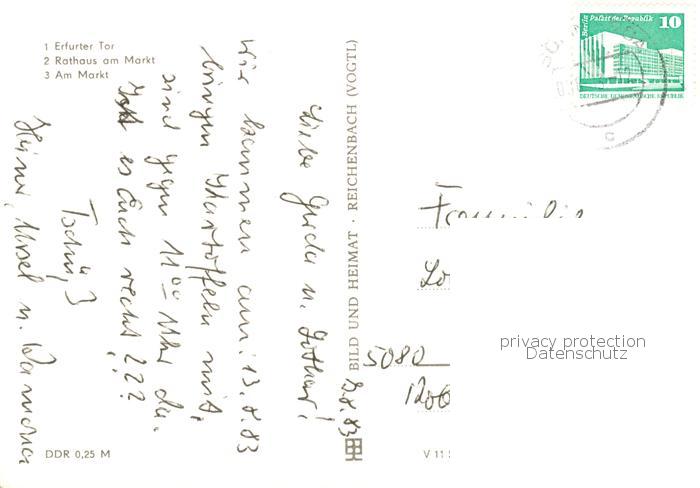 1 Erfurter Tor
2 Rathaus am Markt
3 Am Markt
BILD UND HEIMAT · REICHENBACH (VOGTL)
DDR 0,25 M
V 11
Berlin Palast der Republik
10
DEUTSCHE DEMOKRATISCHE REPUBLIK
c
8.8.83
Liebe Gerda u. Lothar!
Wir kommen am: 13.8.83
bringen Kartoffeln mit,
sind gegen 11°° Uhr da.
Ist es Euch recht???
Tschüß
Heiner, Ursel u. Ramona
Familie
Lo
5080
privacy protection
Datenschutz